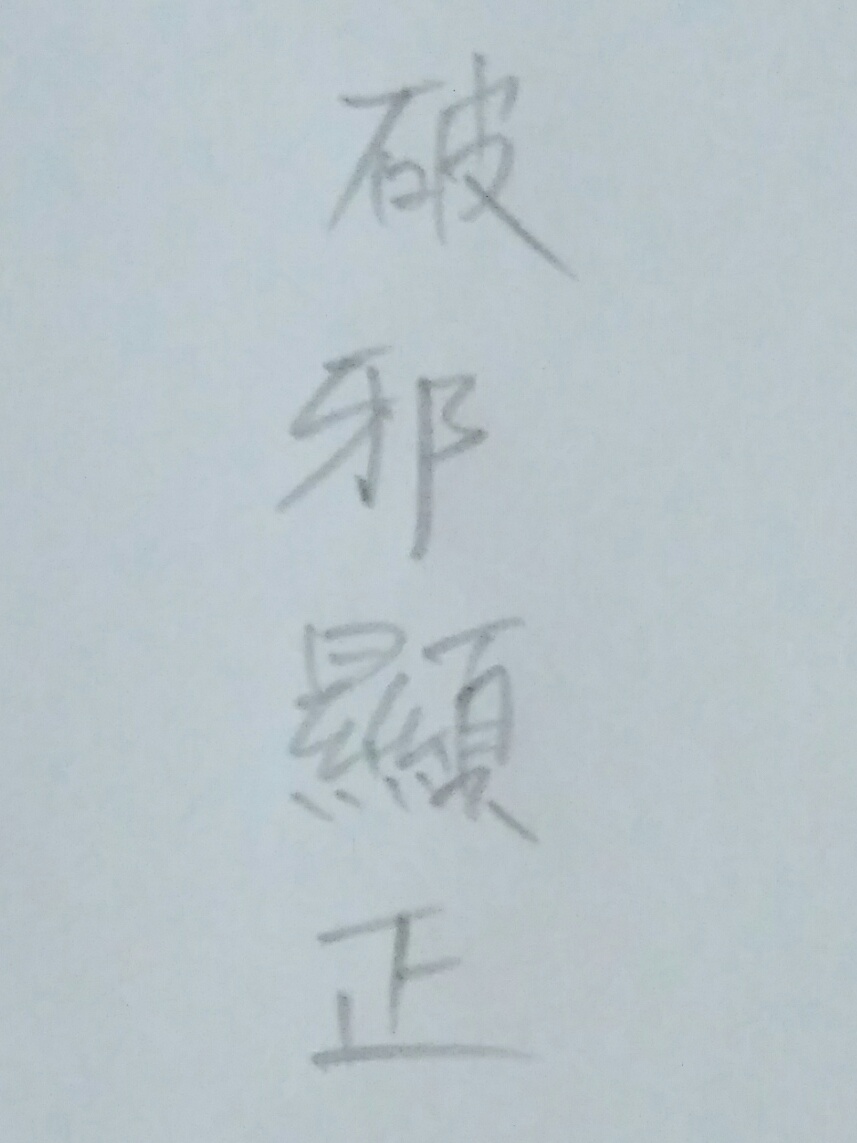 破邪顯正